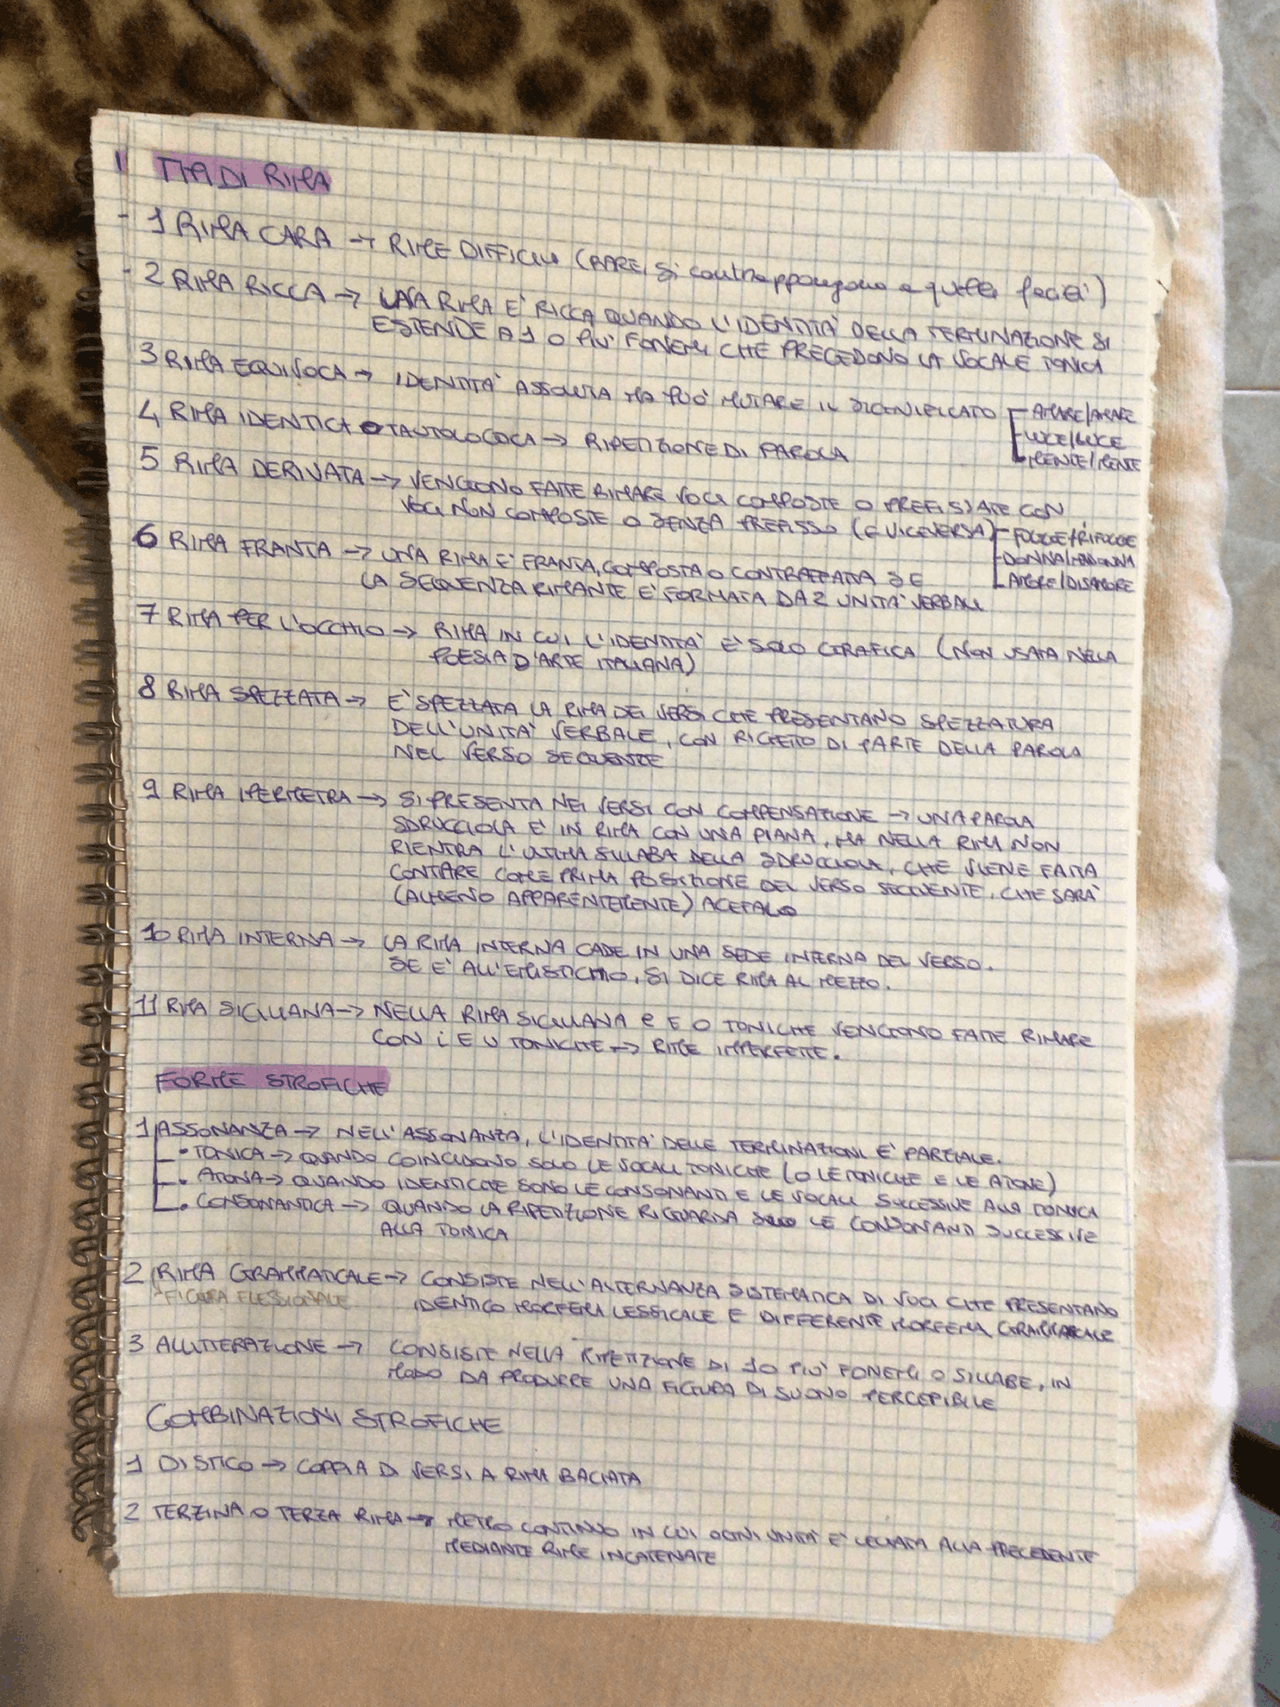 TIPI DI RIMA
- 1 RIMA CARA → RIME DIFFICILI (RARE, si contrappongono a quelle facili)
- 2 RIMA RICCA → UNA RIMA E' RICCA QUANDO L'IDENTITA' DELLA TERMINAZIONE SI
ESTENDE A 1 O PIU' FONEMI CHE PRECEDONO LA VOCALE TONICA
3 RIMA EQUIVOCA → IDENTITA' ASSOLUTA MA PUO' MUTARE IL SIGNIFICATO - AMARE/AMARE
- LUCE/LUCE
- MENTE/MENTE
4 RIMA IDENTICA O TAUTOLOGICA → RIPETIZIONE DI PAROLA
5 RIMA DERIVATA → VENGONO FATTE RIMARE VOCI COMPOSTE O PREFISSATE CON
VOCI NON COMPOSTE O SENZA PREFISSO (E VICEVERSA) - FUGGE/RIFUGGE
- DONNA/MADONNA
- AMORE/DISAMORE
6 RIMA FRANTA → UNA RIMA E' FRANTA, COMPOSTA O CONTRAFFATTA SE
LA SEQUENZA RIMANTE E' FORMATA DA 2 UNITA' VERBALI
7 RIMA PER L'OCCHIO → RIMA IN CUI L'IDENTITA' E' SOLO GRAFICA (NON USATA NELLA
POESIA D'ARTE ITALIANA)
8 RIMA SPEZZATA → E' SPEZZATA LA RIMA DEI VERSI CHE PRESENTANO SPEZZATURA
DELL'UNITA' VERBALE, CON RIGETTO DI PARTE DELLA PAROLA
NEL VERSO SEGUENTE
9 RIMA IPERMETRA → SI PRESENTA NEI VERSI CON COMPENSAZIONE → UNA PAROLA
SDRUCCIOLA E' IN RIMA CON UNA PIANA, MA NELLA RIMA NON
RIENTRA L'ULTIMA SILLABA DELLA SDRUCCIOLA, CHE VIENE FATTA
CONTARE COME PRIMA POSIZIONE DEL VERSO SEGUENTE, CHE SARA'
(ALMENO APPARENTEMENTE) ACEFALO
10 RIMA INTERNA → LA RIMA INTERNA CADE IN UNA SEDE INTERNA DEL VERSO.
SE E' ALL'EMISTICHIO, SI DICE RIMA AL MEZZO.
11 RIMA SICILIANA → NELLA RIMA SICILIANA e E O TONICHE VENGONO FATTE RIMARE
CON i E U TONICHE → RIME IMPERFETTE.
FORME STROFICHE
1 ASSONANZA → NELL'ASSONANZA, L'IDENTITA' DELLE TERMINAZIONI E' PARZIALE.
• TONICA → QUANDO COINCIDONO SOLO LE VOCALI TONICHE (O LE TONICHE E LE ATONE)
• ATONA → QUANDO IDENTICHE SONO LE CONSONANTI E LE VOCALI SUCCESSIVE ALLA TONICA
• CONSONANTICA → QUANDO LA RIPETIZIONE RIGUARDA SOLO LE CONSONANTI SUCCESSIVE
ALLA TONICA
2 RIMA GRAMMATICALE → CONSISTE NELL'ALTERNANZA SISTEMATICA DI VOCI CHE PRESENTANO
FIGURA FLESSIONALE IDENTICO MORFEMA LESSICALE E DIFFERENTE MORFEMA GRAMMATICALE
3 ALLITTERAZIONE → CONSISTE NELLA RIPETIZIONE DI 1 O PIU' FONEMI O SILLABE, IN
MODO DA PRODURRE UNA FIGURA DI SUONO PERCEPIBILE
COMBINAZIONI STROFICHE
1 DISTICO → COPPIA DI VERSI A RIMA BACIATA
2 TERZINA O TERZA RIMA → METRO CONTINUO IN CUI OGNI UNITA' E' LEGATA ALLA PRECEDENTE
MEDIANTE RIME INCATENATE